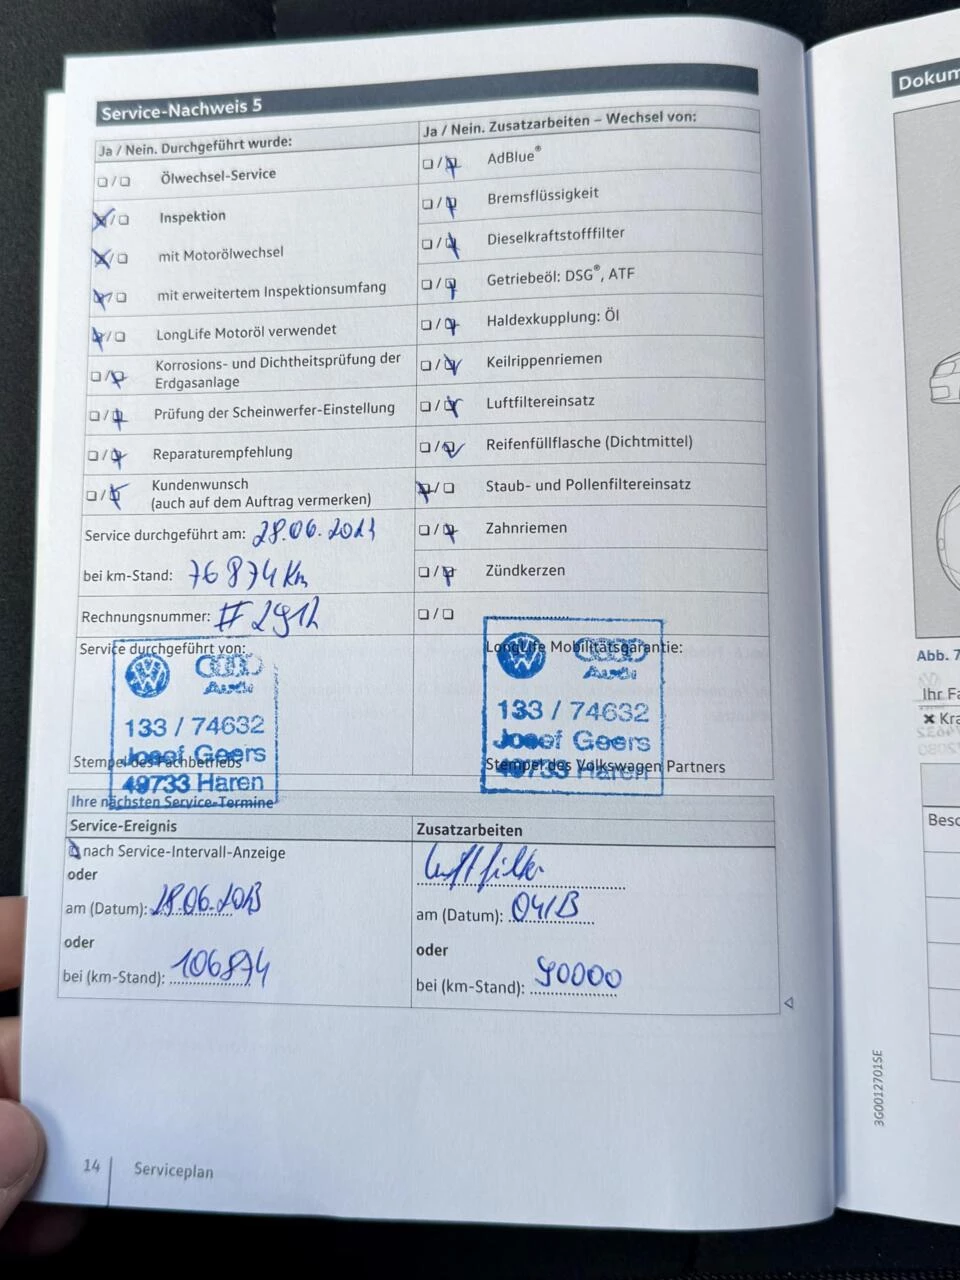 Service-Nachweis 5
Ja / Nein. Durchgeführt wurde:
Ölwechsel-Service
Inspektion
mit Motorölwechsel
mit erweitertem Inspektionsumfang
LongLife Motoröl verwendet
Korrosions- und Dichtheitsprüfung der
Erdgasanlage
Prüfung der Scheinwerfer-Einstellung
Reparaturempfehlung
Kundenwunsch
(auch auf dem Auftrag vermerken)
Service durchgeführt am: 28.06.2021
bei km-Stand: 76874 Km
Rechnungsnummer: #2912
Service durchgeführt von:
Audi
133 / 74632
Josef Geers
49733 Haren
Stempel des Fachbetriebs
Ja / Nein. Zusatzarbeiten – Wechsel von:
AdBlue®
Bremsflüssigkeit
Dieselkraftstofffilter
Getriebeöl: DSG®, ATF
Haldexkupplung: Öl
Keilrippenriemen
Luftfiltereinsatz
Reifenfüllflasche (Dichtmittel)
Staub- und Pollenfiltereinsatz
Zahnriemen
Zündkerzen
LongLife Mobilitätsgarantie:
Audi
133 / 74632
Josef Geers
49733 Haren
Stempel des Volkswagen Partners
Ihre nächsten Service-Termine
Service-Ereignis
nach Service-Intervall-Anzeige
oder
am (Datum): 28.06.2023
oder
bei (km-Stand): 106874
Zusatzarbeiten
Luftfilter
am (Datum):
oder
bei (km-Stand): 90000
14
Serviceplan
Dokum
Abb. 7
Ihr Fa
Kra
Besc
3G0012701SE